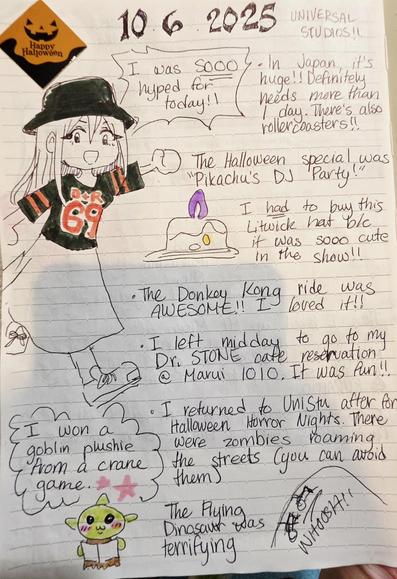 Happy
Halloween
10 6 2025
UNIVERSAL
STUDIOS!!
I was SOOO
hyped for
today!!
• In Japan, it's
huge!! Definitely
needs more than
1 day. There's also
rollercoasters!!
The Halloween special was
"Pikachu's DJ Party!"
I had to buy this
Litwick hat b/c
it was sooo cute
in the show!!
69
• The Donkey Kong ride was
AWESOME!! I loved it!!
• I left midday to go to my
Dr. STONE cafe reservation
@ Marui 1010. It was fun!!
• I returned to UniStu after for
Halloween Horror Nights. There
were zombies roaming
the streets (you can avoid
them)
I won a
goblin plushie
from a crane
game.
The Flying
Dinosaur was
terrifying
WHOOSH!!